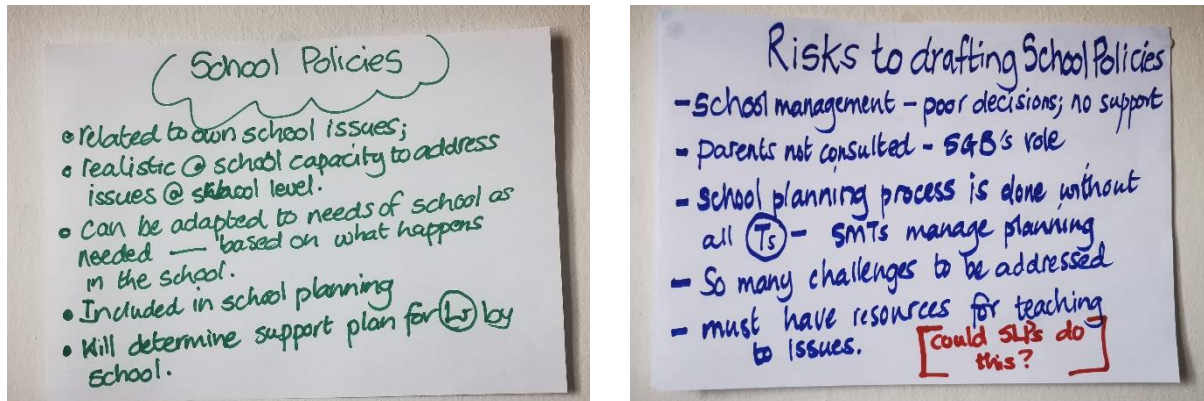 School Policies
• related to own school issues;
• realistic @ school capacity to address
issues @ school level.
• can be adapted to needs of school as
needed — based on what happens
in the school.
• Included in school planning
• Will determine support plan for Ls by
school.
Risks to drafting School Policies
- School management - poor decisions; no support
- parents not consulted - SGB's role
- school planning process is done without
all Ts - SMTs manage planning
- So many challenges to be addressed
- must have resources for teaching
to issues.
[could SLPs do
this?]